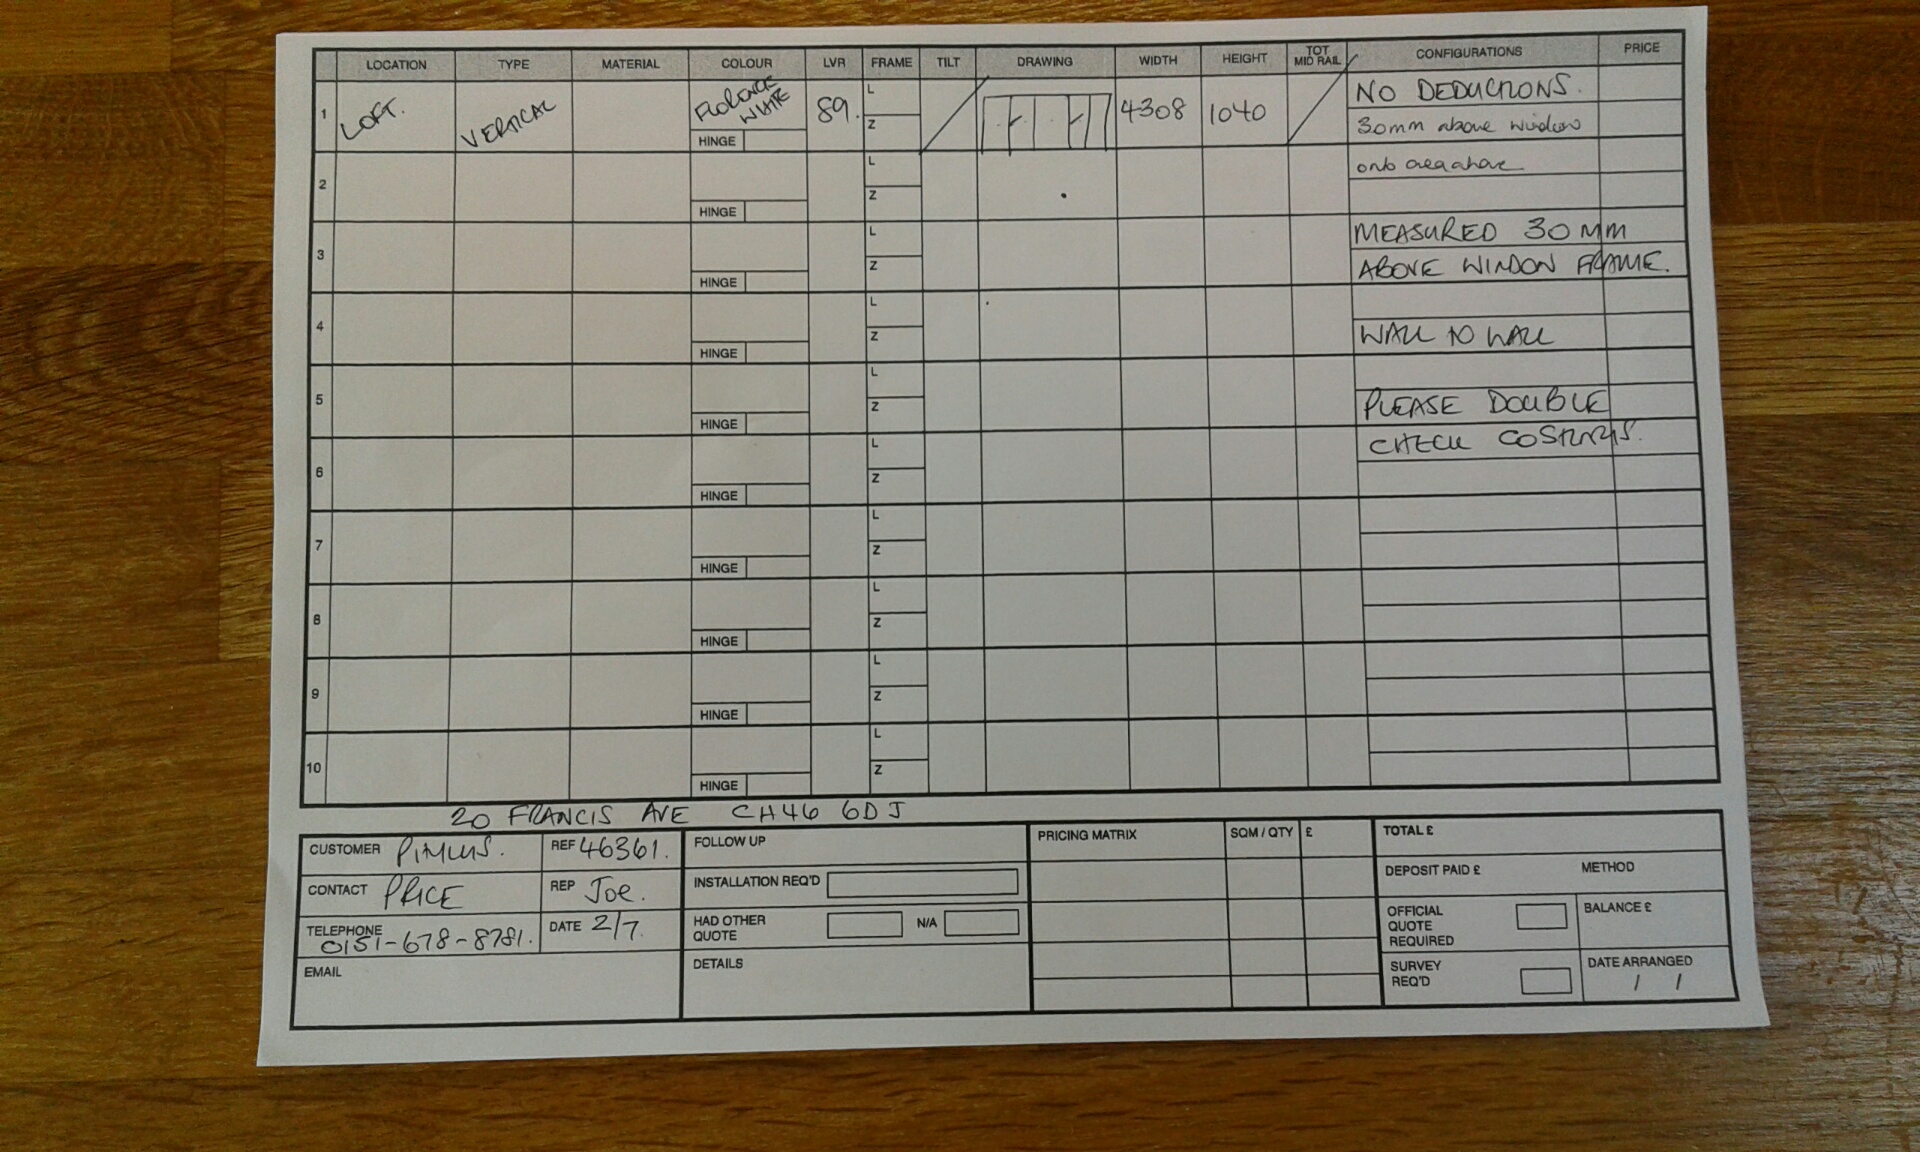 LOCATION TYPE MATERIAL COLOUR LVR FRAME TILT DRAWING WIDTH HEIGHT TOT MID RAIL CONFIGURATIONS PRICE
1 LOFT. VERTICAL FLORENCE WHITE 89. L Z 4308 1040 NO DEDUCTIONS.
HINGE 30mm above window
2 L Z HINGE onto area above
3 L Z HINGE MEASURED 30MM
ABOVE WINDOW FRAME.
4 L Z HINGE WALL TO WALL
5 L Z HINGE PLEASE DOUBLE
6 L Z HINGE CHECK
7 L Z HINGE
8 L Z HINGE
9 L Z HINGE
10 L Z HINGE
20 FRANCIS AVE CH46 6DJ
CUSTOMER REF 46361.
CONTACT PRICE REP Joe.
TELEPHONE 0151-678-8781. DATE 2/7.
EMAIL
FOLLOW UP
INSTALLATION REQ'D
HAD OTHER QUOTE N/A
DETAILS
PRICING MATRIX SQM / QTY £
TOTAL £
DEPOSIT PAID £ METHOD
OFFICIAL QUOTE REQUIRED BALANCE £
SURVEY REQ'D DATE ARRANGED
/ /